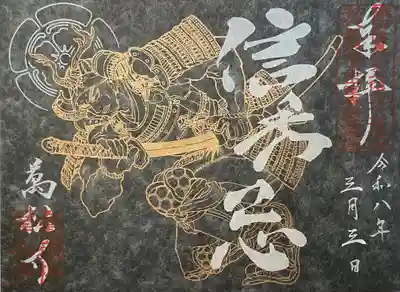 奉拝
令和八年
三月三日
信秀忌
萬松寺